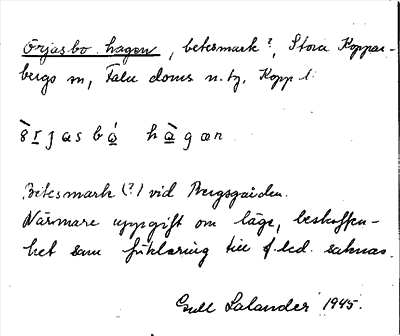 Örjasbo hagen, betesmark?, Stora Koppar-
bergs sn, Falu doms n. tg, Kopp l.
betesmark (?) vid Bergsgården.
Närmare uppgift om läge, beskaffen-
het samt förklaring till f.led. saknas.
Gull Lalander 1945.